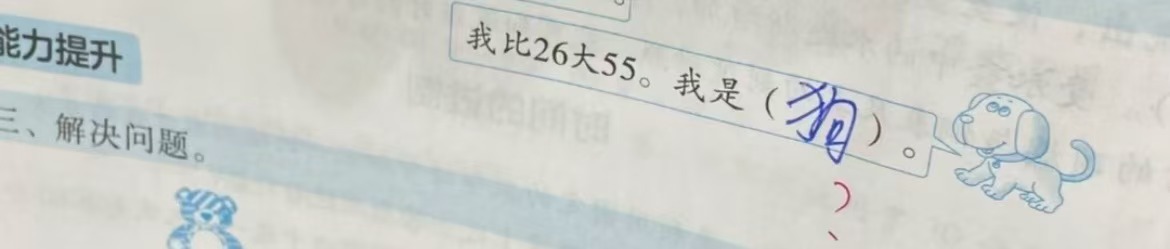 我比26大55。我是(狗)。
能力提升
三、解决问题。
?